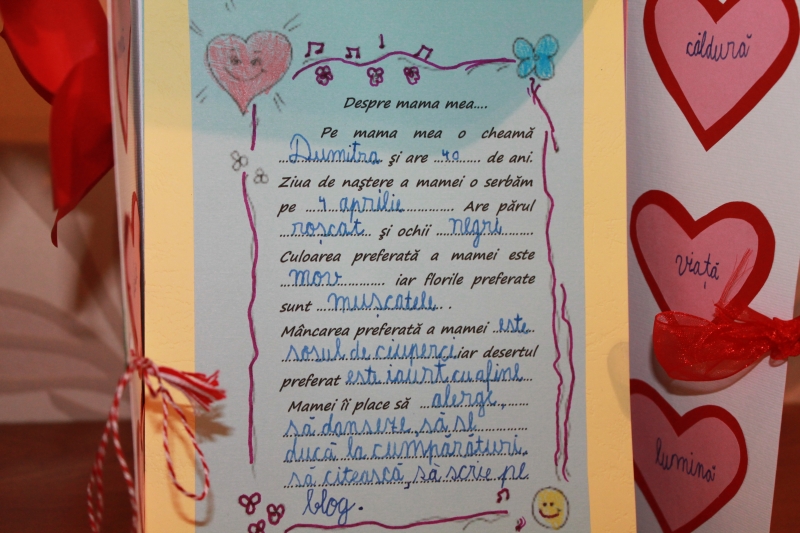 Despre mama mea....
Pe mama mea o cheamă
Dumitra şi are 40 de ani.
Ziua de naştere a mamei o serbăm
pe 4 aprilie Are părul
roșcat şi ochii negri
Culoarea preferată a mamei este
mov iar florile preferate
sunt mușcatele.
Mâncarea preferată a mamei este
sosul de ciuperci iar desertul
preferat esti iaurt cu afine
Mamei îi place să alerge,
să danseze, să se
ducă la cumpărături,
să citească, să scrie pe
blog.
căldură
viață
lumină